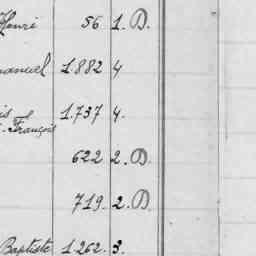 Henri 56 1. D.
manuel 1.882 4
is
François 1.737 4.
622 2. D.
719. 2. D
Baptiste 1.262. 3.